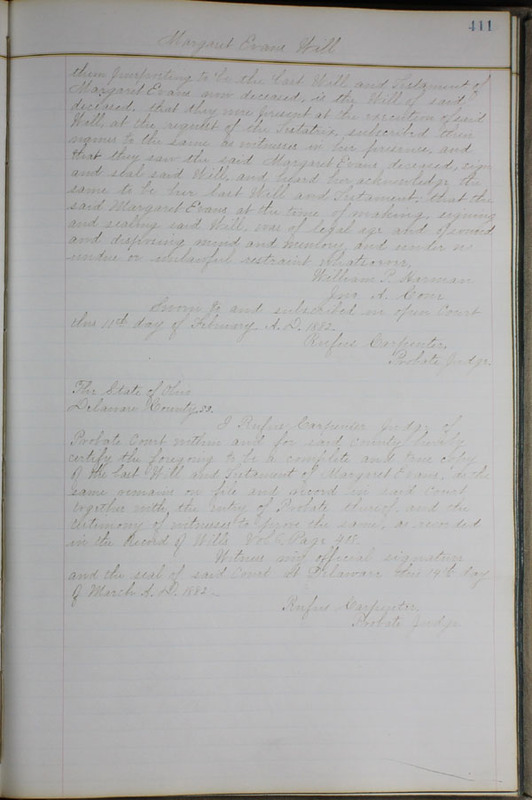 411
Margaret Evans Will
them purporting to be the last Will and Testament of
Margaret Evans now deceased, is the Will of said
deceased, that they were present at the execution of said
Will, at the request of the Testatrix, subscribed their
names to the same as witnesses in her presence, and
that they saw the said Margaret Evans, deceased, sign
and seal said Will, and heard her acknowledge the
same to be her last Will and Testament. that the
said Margaret Evans, at the time of making, signing
and sealing said Will, was of legal age and of sound
and disposing mind and memory, and under no
undue or unlawful restraint whatsoever,
William P. Harman
Jno. A. Cone
Sworn to and subscribed in open Court
this 11th day of February A. D. 1882
Rufus Carpenter
Probate Judge.
The State of Ohio
Delaware County, ss.
I Rufus Carpenter Judge of
Probate Court within and for said County hereby
certify the foregoing to be a complete and true copy
of the last Will and Testament of Margaret Evans, as the
same remains on file and record in said Court
together with the entry of Probate thereof, and the
testimony of witnesses to prove the same, as recorded
in the Record of Wills Vol Page 418.
Witness my official signature
and the seal of said Court at Delaware this 14th day
of March A. D. 1882.
Rufus Carpenter
Probate Judge